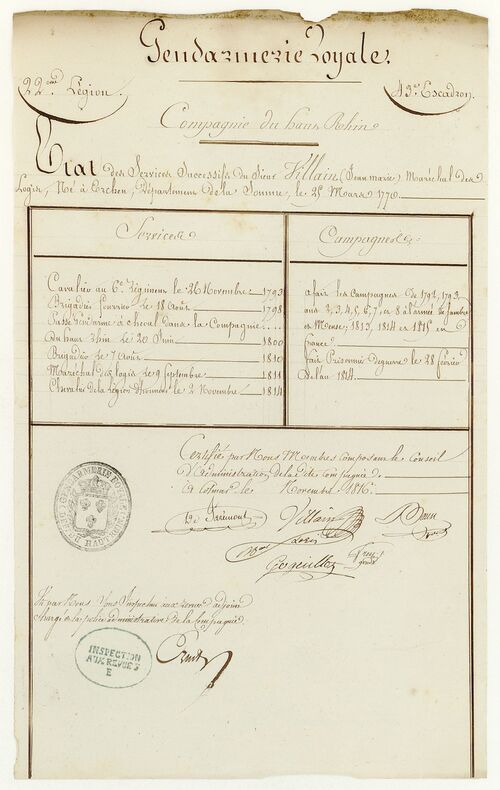 Gendarmerie Royale.
22eme Légion.
43e Escadron.
Compagnie du haut Rhin
Etat des Services Successifs du Sieur Villain (Jean marie) Maréchal des
Logis, Né à Corchen, Département De la Somme, le 25 Mars 1770
Services
Campagnes
Cavalier au 6e Régiment le 26 Novembre 1793
Brigadier fourrier le 18 Août 1798
Passé Gendarme à cheval dans la Compagnie
Du haut Rhin le 20 Juin 1800
Brigadier le 7 Août 1810
Maréchal des logis le 9 Septembre 1811
Chevalier de la Légion d'honneur le 2 Novembre 1814
a fait les Campagnes De 1792, 1793,
ans 2, 3, 4, 5, 6, 7, et 8 à l'armée de Sambre
et Meuse, 1813, 1814 et 1815 en
france.
fait Prisonnier De guerre le 28 février
De l'an 1814.
Certifié par Nous Membres composant le Conseil
D'administration de la de Compagnie.
a Colmar le Novembre 1816.
Villain
Vu par Nous Sous Inspecteur aux revues adjoint
chargé de la police administrative de la Compagnie.
INSPECTION
AUX REVUES
E